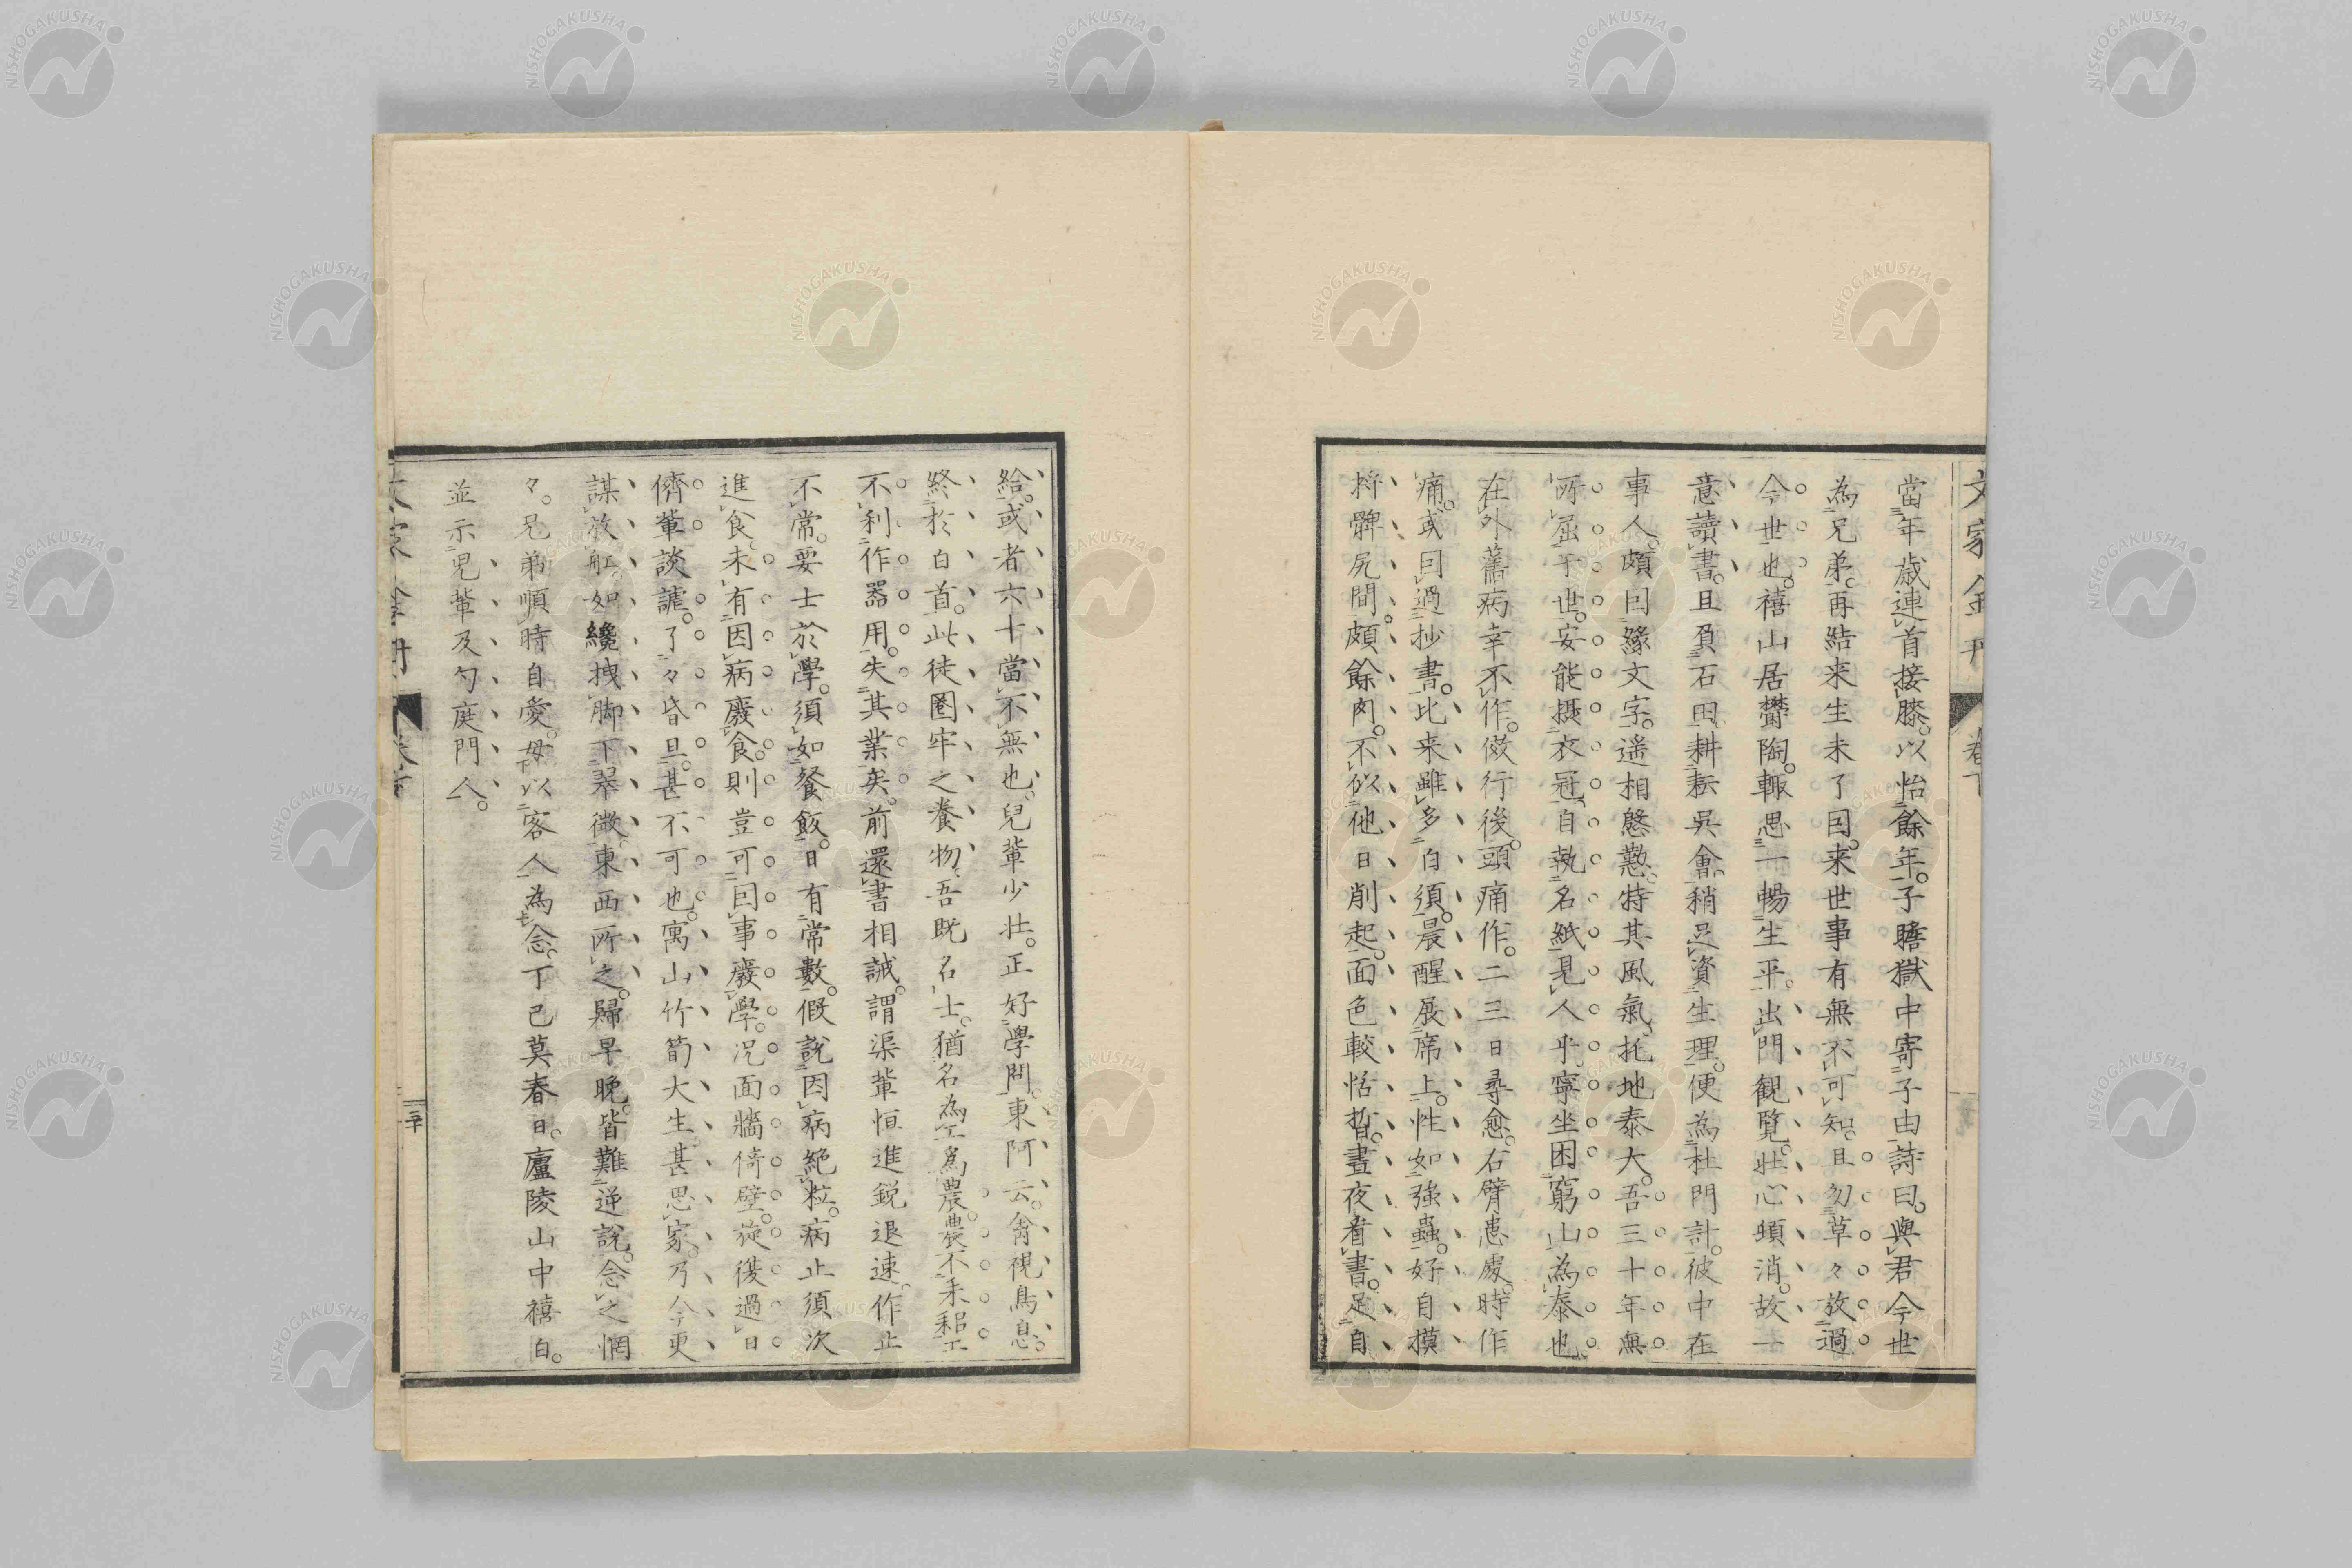 當年歲連首接膝。以怡餘年。子瞻獄中寄子由詩曰。與君今世
為兄弟。再結来生未了因。来世事有無不可知。且勿草々放過
今世也。禧山居鬱陶。輙思一暢生平。出門観覽。壯心頓消。故一
意讀書。且負石田。耕耘吳會。稍足資生理。便為杜門計。彼中在
事人。頗因緣文字。遙相慇懃。特其風氣。托地泰大。吾三十年無
所屈于世。安能摂衣冠。自執名紙見人乎。寧坐困窮山。為泰也。
在外舊病幸不作。倣行後。頭痛作。二三日尋愈。右臂患處。時作
痛。或因過抄書。比来雖多白須。晨醒展席上。性如強蟲。好自摸
拊髀尻間。頗餘肉。不似他日削起。面色較恬皙。晝夜看書。足自
給。或者六十當不無也。兒輩少壮。正好學問。東阿云。禽視鳥息。
終於白首。此徒圈牢之養物。吾既名士。猶名為工為農。農不耒耜。工
不利作器用。失其業矣。前還書相誡。謂渠輩恒進鋭退速。作止
不常。要士於學。須如餐飯。日有常數。假說因病絶粒。病止須次
進食。未有因病廢食。則豈可因事廢學。况面牆倚壁。旋復過日
儕輩談謔。了々昏旦。甚不可也。寓山竹筍大生甚思家。乃今更
謀放舡。如纔拽脚下翠微。東西所之。歸早晚。皆難逆説。念之惘
々。兄弟順時自愛。毋以客人為念。丁已莫春日。廬陵山中禧白。
並示兒輩及勺庭門人。